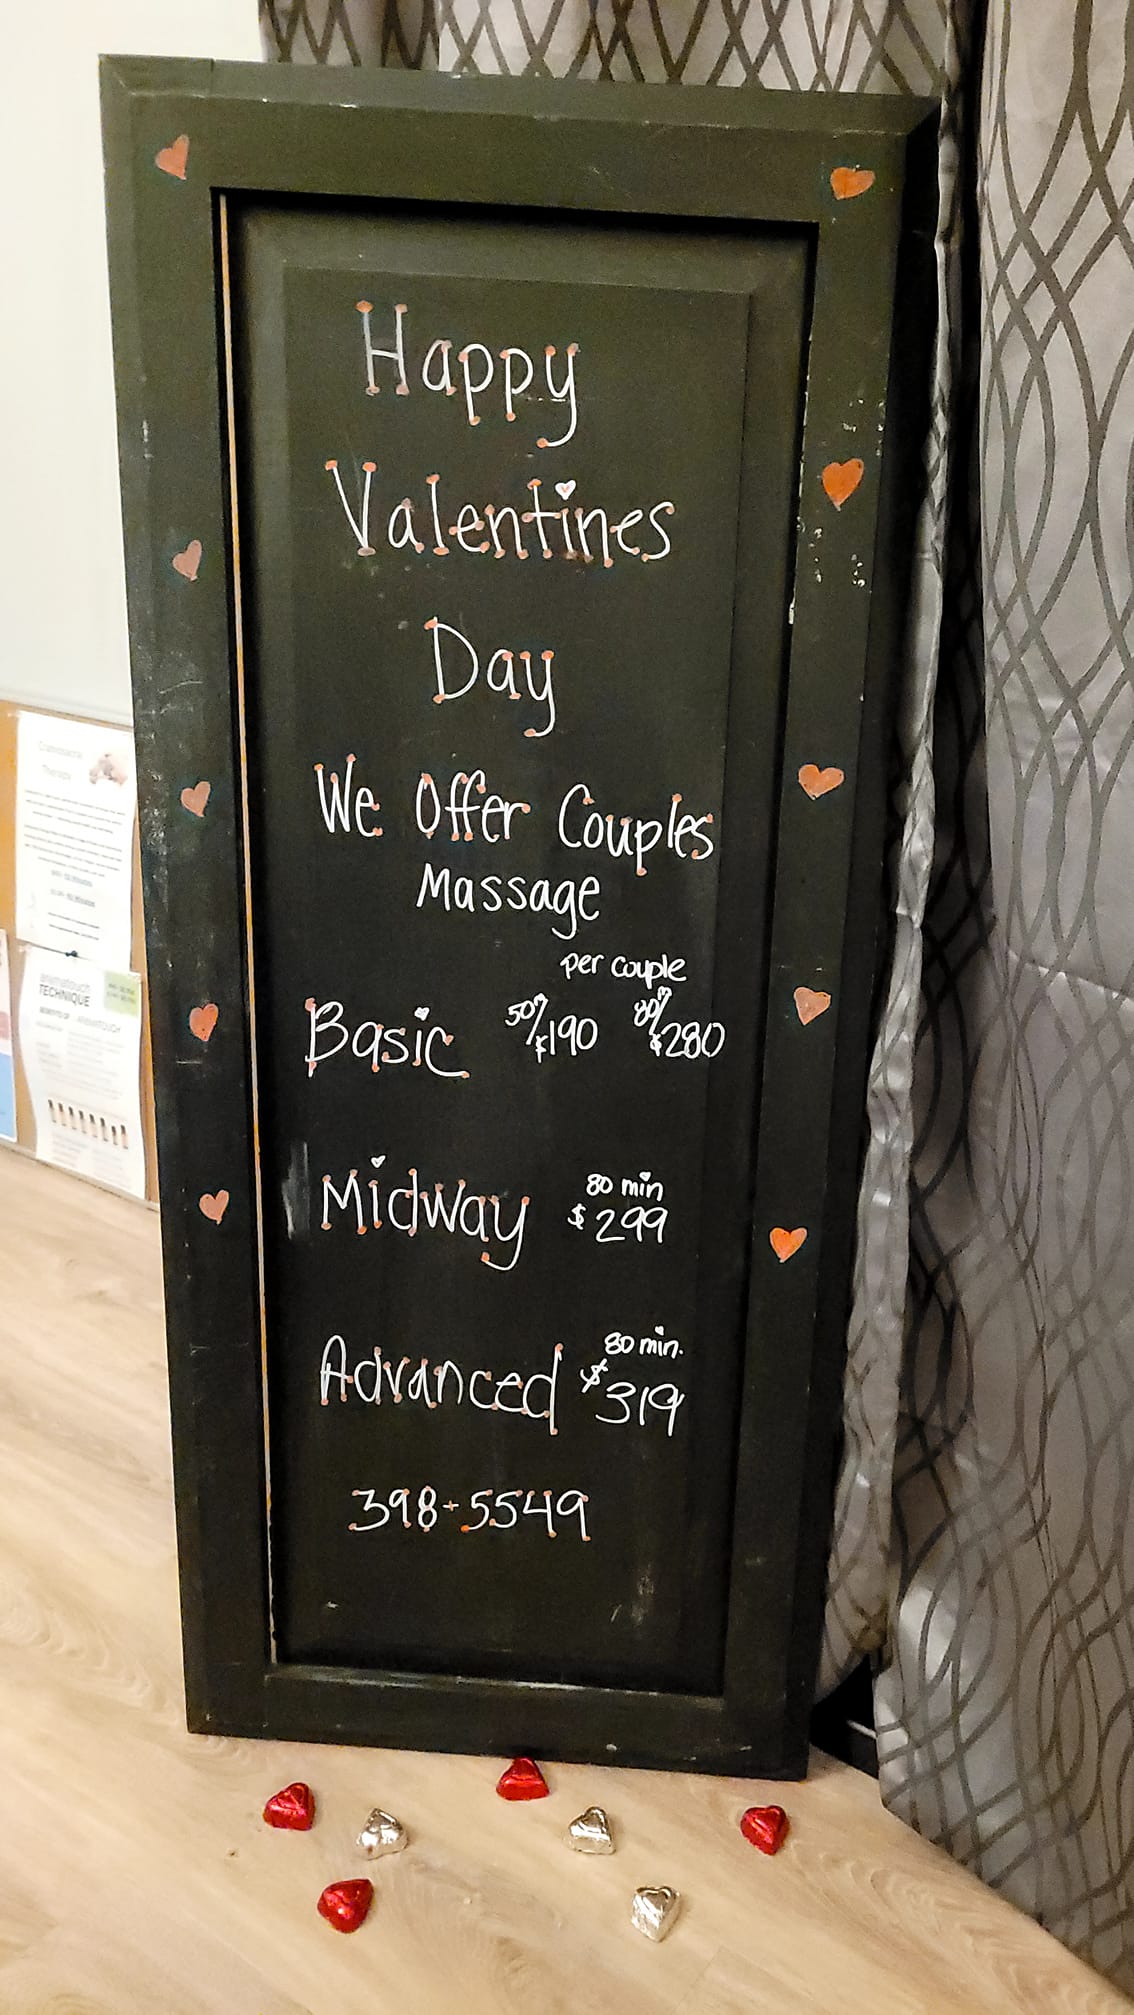 Happy
Valentines
Day
We Offer Couples
Massage
per couple
Basic 50m/$190 80m/$280
Midway 80 min $299
Advanced 80 min. $319
398-5549
Craniosacral
Therapy
TECHNIQUE